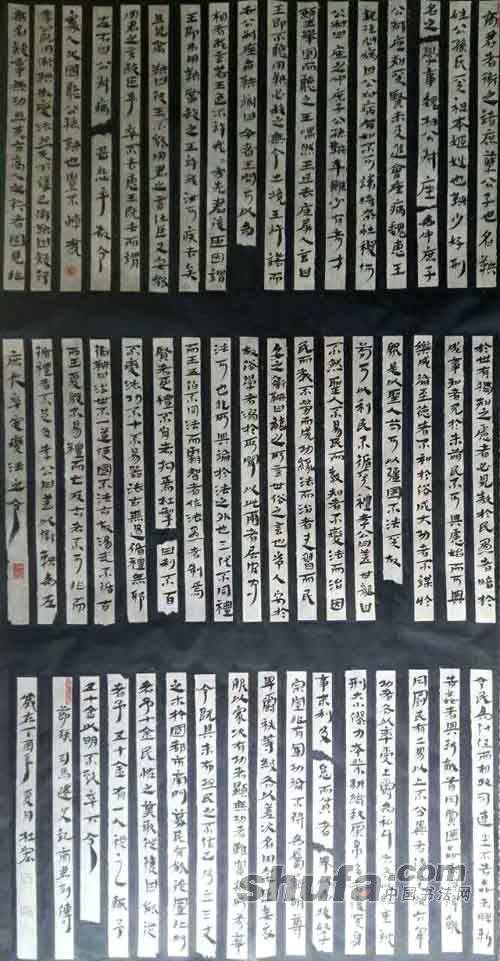 商君者衛之諸庶孽公子也名鞅
姓公孫氏其祖本姬姓也鞅少好刑
名之學事魏相公叔座為中庶子
公叔座知其賢未及進會座病魏惠王
親往問病曰公叔病有如不可諱將奈社稷何
公叔曰座之中庶子公孫鞅年雖少有奇才
願王舉國而聽之王嘿然王且去座屏人言曰
王即不聽用鞅必殺之無令出境王許諾而
去公叔座召鞅謝曰今者王問可以為
相者我言若王色不許我我方先君後臣因謂
王即弗用鞅當殺之王許我汝可疾去矣
且見禽鞅曰彼王不能用君之言任臣又安能
用君之言殺臣乎卒不去惠王既去而謂
左右曰公叔病甚悲乎欲令
寡人以國聽公孫鞅也豈不悖哉
孝公既用衛鞅鞅欲變法恐天下議己衛鞅曰疑行
無名疑事無功且夫有高人之行者固見非
於世有獨知之慮者必見敖於民愚者暗於
成事知者見於未萌民不可與慮始而可與
樂成論至德者不和於俗成大功者不謀於
眾是以聖人苟可以強國不法其故
苟可以利民不循其禮孝公曰善甘龍曰
不然聖人不易民而教知者不變法而治因
民而教不勞而成功緣法而治者吏習而民
安之衛鞅曰龍之所言世俗之言也常人安於
故俗學者溺於所聞以此兩者居官守
法可也非所與論於法之外也三代不同禮
而王五伯不同法而霸智者作法愚者制焉
賢者更禮不肖者拘焉杜摯曰利不百
不變法功不十不易器法古無過循禮無邪
衛鞅曰治世不一道便國不法古故湯武不循古
而王夏殷不易禮而亡反古者不可非而
循禮者不足多孝公曰善以衛鞅為左
庶長卒定變法之令
令民為什伍而相牧司連坐不告姦者腰斬
告姦者與斬敵首同賞匿姦者與降敵
同罰民有二男以上不分異者倍其賦有軍
功者各以率受上爵為私鬥者各以輕重被
刑大小僇力本業耕織致粟帛多者復其身
事末利及怠而貧者舉以為收孥
宗室非有軍功論不得為屬籍明尊
卑爵秩等級各以差次名田宅臣妾衣
服以家次有功者顯榮無功者雖富無所芬華
令既具未布恐民之不信己乃立三丈
之木於國都市南門募民有能徙置北門
者予十金民怪之莫敢徙復曰能徙
者予五十金有一人徙之輒予
五十金以明不欺卒下令
節錄司馬遷史記商君列傳
歲在丁酉年夏月杜宏
shufa.com
中国书法网